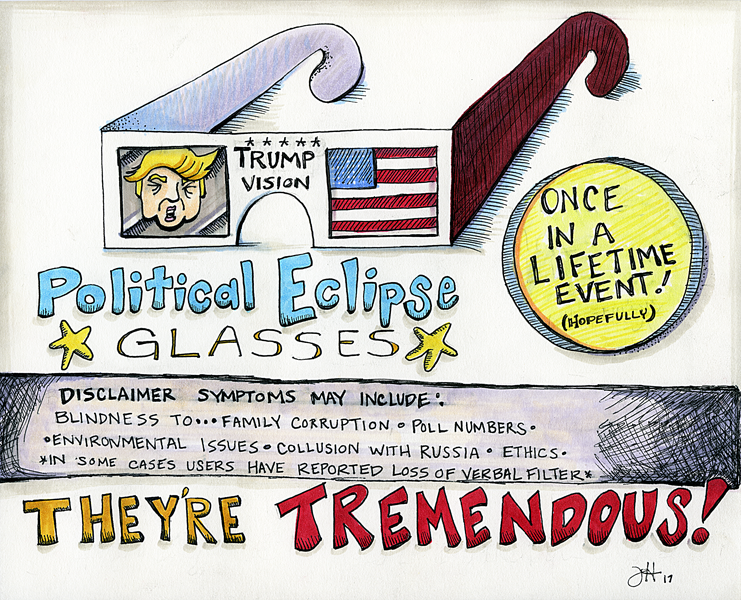 ★★★★★
TRUMP
VISION
ONCE
IN A
LIFETIME
EVENT!
(HOPEFULLY)
Political Eclipse
GLASSES
DISCLAIMER SYMPTOMS MAY INCLUDE:
BLINDNESS TO...• FAMILY CORRUPTION • POLL NUMBERS•
•ENVIRONMENTAL ISSUES • COLLUSION WITH RUSSIA • ETHICS•
*IN SOME CASES USERS HAVE REPORTED LOSS OF VERBAL FILTER*
THEY'RE TREMENDOUS!
17